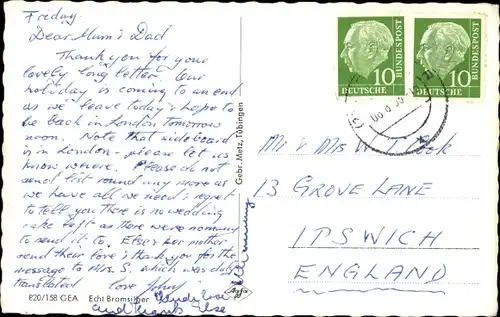 Friday.
Dear Mum & Dad
Thank you for your
lovely long letter. Our
holiday is coming to an end
as we leave today & hope to
be back in London tomorrow
noon. Note that sideboard
is in London - please let us
know where. Please do not
send list round any more as
we have all we need. I regret
to tell you there is no wedding
cake left as there were so many
to send it to. Else & her mother
send their love & thank you for the
message to Mrs. S. which was duly
translated love John
love
and thanks Else
820/158 GEA Echt Bromsilber
Gebr. Metz, Tübingen
Agfa
10
DEUTSCHE
BUNDESPOST
10
DEUTSCHE
BUNDESPOST
Mr & Mrs W. J.
13 GROVE LANE
IPSWICH
ENGLAND